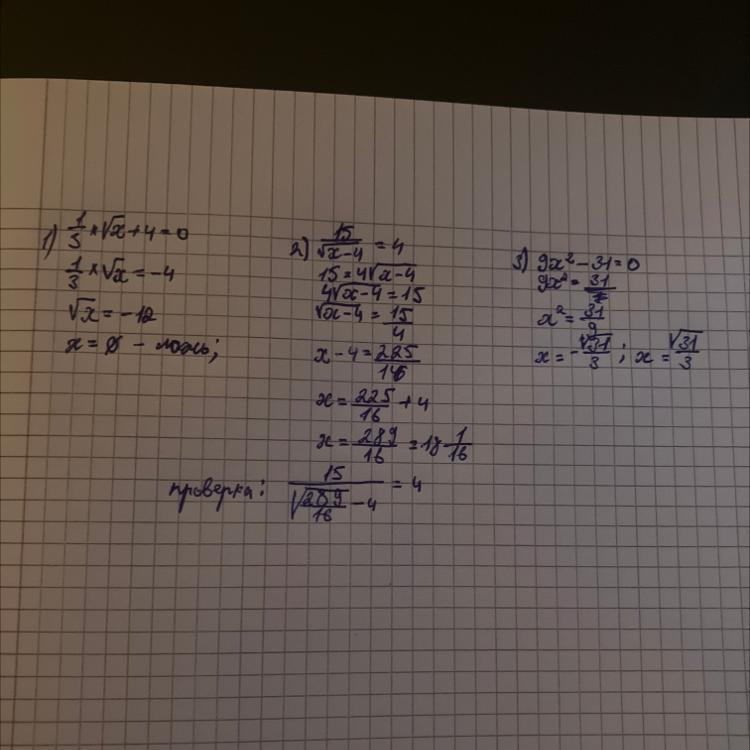 1) 1/3 × √x + 4 = 0
1/3 × √x = -4
√x = -12
x = ∅ - ложь;
2) 15/√x-4 = 4
15 = 4√x-4
4√x-4 = 15
√x-4 = 15/4
x - 4 = 225/16
x = 225/16 + 4
x = 289/16 = 18 1/16
проверка: 15/√289/16 - 4 = 4
3) 9x² - 31 = 0
9x² = 31
x² = 31/9
x = -√31/3 ; x = √31/3